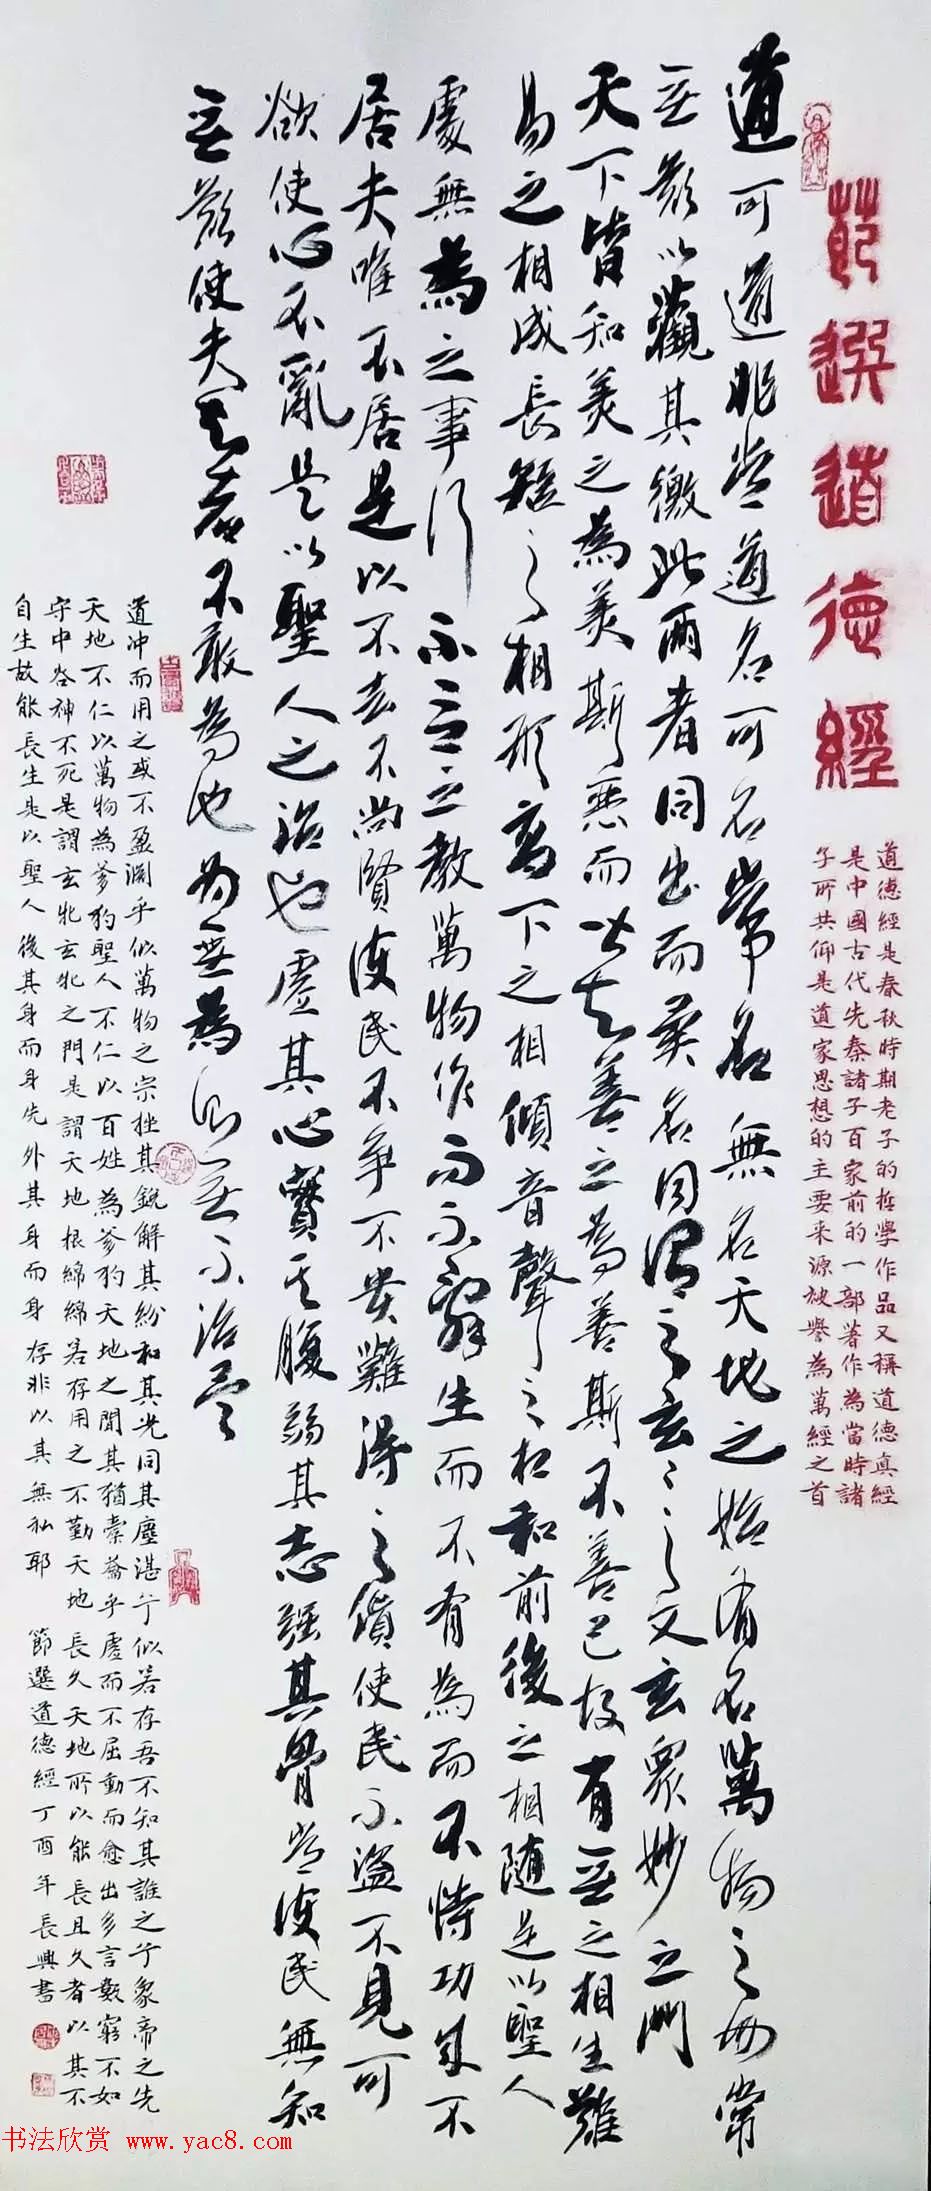 節選道德經
道德經是春秋時期老子的哲學作品又稱道德真經
是中國古代先秦諸子百家前的一部著作為當時諸
子所共仰是道家思想的主要来源被譽為萬經之首
道可道道非常道名可名名常名無名天地之始有名萬物之母常
無欲以觀其徼此兩者同出而異名同謂之玄玄之又玄眾妙之門
天下皆知美之為美斯惡而皆知善之為善斯不善已故有無之相生難
易之相成長短之相形高下之相傾音聲之相和前後之相随是以聖人
處無為之事行不言之教萬物作而不辭生而不有為而不恃功成不
居夫唯不居是以不去不尚賢使民不争不貴難得之貨使民不盗不見可
欲使心不亂是以聖人之治也虛其心實其腹弱其志强其骨常使民無知
無欲使夫知者不敢為也為無為則無不治矣
道冲而用之或不盈渊乎似萬物之宗挫其銳解其紛和其光同其塵湛兮似若存吾不知其誰之子象帝之先
天地不仁以萬物為芻狗聖人不仁以百姓為芻狗天地之間其猶橐籥乎虛而不屈動而愈出多言數窮不如
守中谷神不死是謂玄牝玄牝之門是謂天地根綿綿若存用之不勤天地長久天地所以能長且久者以其不
自生故能長生是以聖人後其身而身先外其身而身存非以其無私耶 節選道德經丁酉年長興書
书法欣赏 www.yac8.com